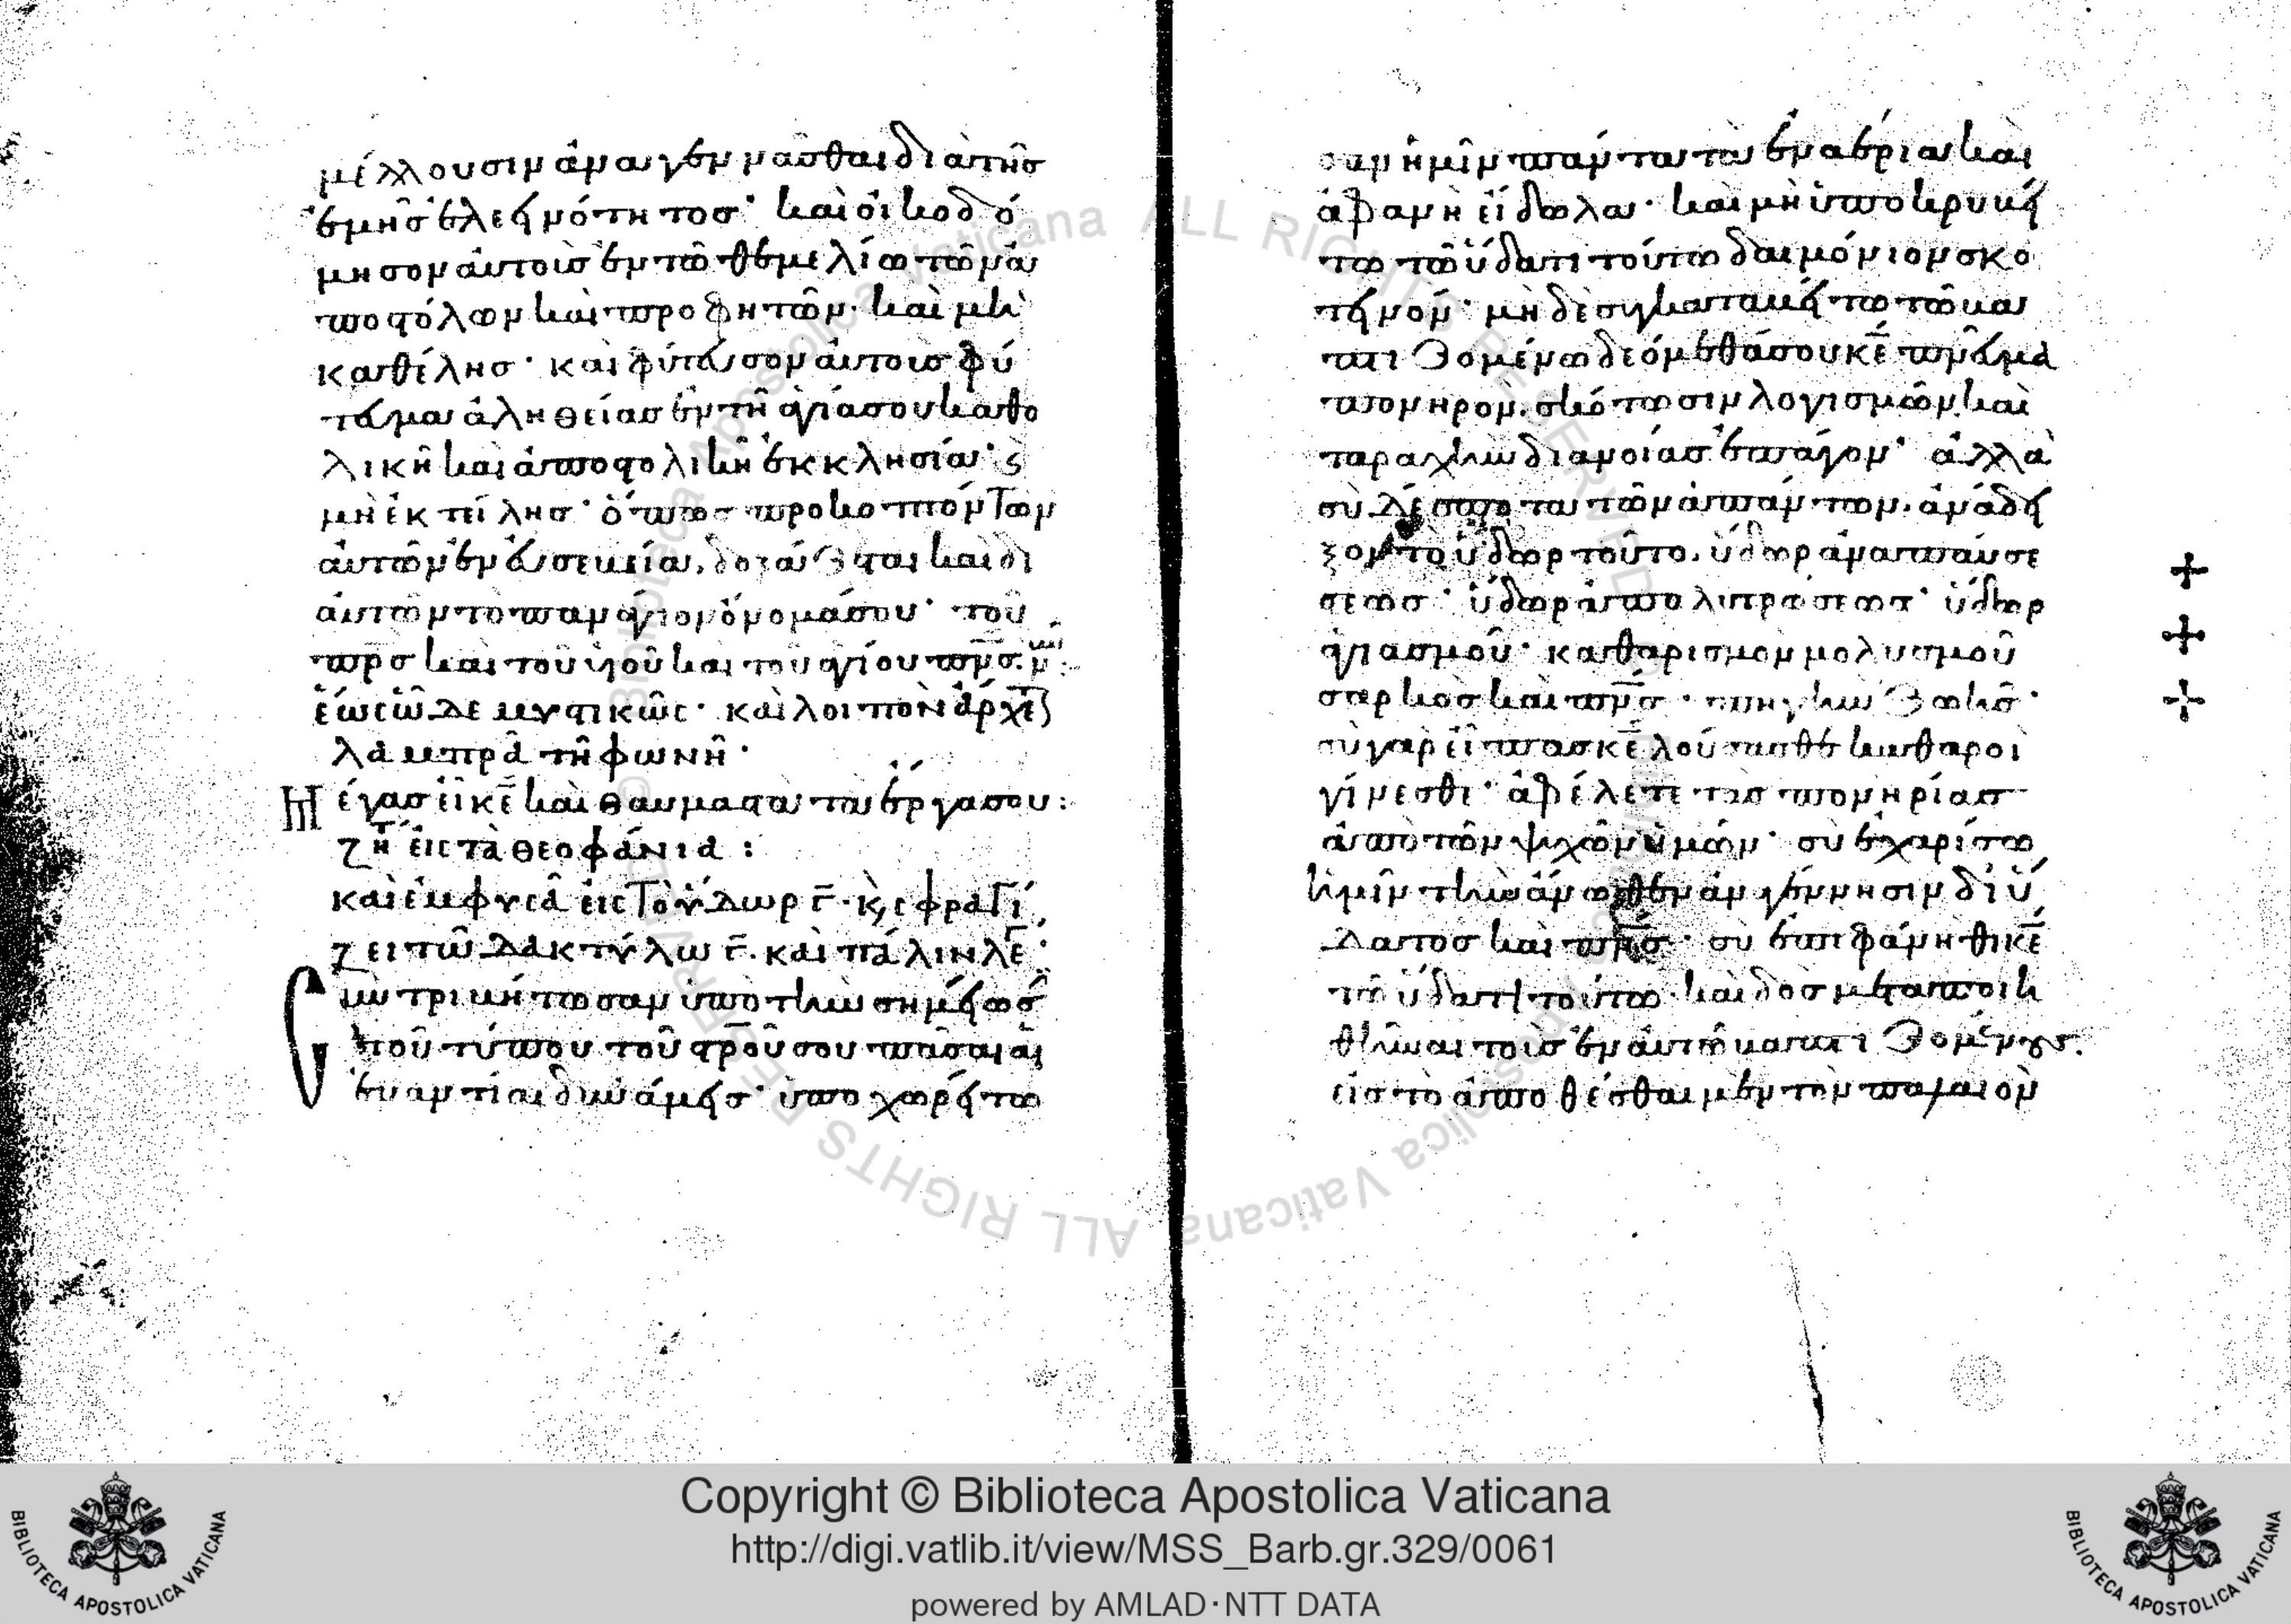 μέλλουσιν ἀναγεννᾶσθαι διὰ τῆσ
ἐμῆσ ἐλεεινότητοσ· καὶ οἰκοδό
μησον αὐτοισ ἐν τῶ θεμελίω τῶν ἀ
ποστόλων καὶ προφητῶν· καὶ μὴ
καθέλησ· καὶ φύτευσον αὐτοισ φύ
τευμα ἀληθείασ ἐν τῆ ἁγία σου καθο
λικῆ καὶ ἀποστολικῆ ἐκκλησία· ϛ
μὴ ἐκτίλησ· ὅπωσ προκοπτόντων
αὐτῶν ἐν εὐσεβεία, δοξάζηται καὶ δι
αὐτῶν τὸ πανάγιον ὄνομά σου· τοῦ
πρσ καὶ τοῦ υἱοῦ καὶ τοῦ ἁγίου πνσ· ν
ἕως ὧδε μυστικῶς· καὶ λοιπὸν ἄρχετ
λαμπρᾶ τῆ φωνῆ·
Μέγασ εἶ κε καὶ θαυμαστὰ τὰ ἔργα σου:
ζη εἰς τὰ θεοφάνια:
καὶ ἐμφυσᾶ εἰς τὸ ὕδωρ γ· κ, σφραγί
ζει τῶ δακτύλω γ· καὶ πάλιν λε·
Συντριβήτωσαν ὑπὸ τὴν σημείωσ
τοῦ τύπου τοῦ στροῦ σου πᾶσαι αἱ
ἐναντίαι δυνάμεισ· ὑποχωρείτω
σαν ἡμῖν πάντα τὰ ἐναέρια καὶ
ἀφανῆ εἴδωλα· καὶ μὴ ὑποκρυβεί
τω τῶ ὕδατι τούτω δαιμόνιον σκο
τεινόν· μηδὲ συγκαταβείτω τῶ βα
πτιζομένω δεόμεθά σου κε πνεῦμα
πονηρόν, σκότωσιν λογισμῶν καὶ
ταραχὴν διανοίασ ἐπάγον· ἀλλὰ
σὺ δέσποτα τῶν ἁπάντων, ἀνάδει
ξον τὸ ὕδωρ τοῦτο, ὕδωρ ἀναπαύσε
σεωσ· ὕδωρ ἀπολυτρώσεωσ· ὕδωρ
ἁγιασμοῦ· καθαρισμὸν μολυσμοῦ
σαρκὸσ καὶ πνσ· πηγὴν ζωῆσ·
σὺ γὰρ εἶπασ κε λούσασθε καθαροὶ
γίνεσθε· ἀφέλετε τὰσ πονηρίασ
ἀπὸ τῶν ψυχῶν ὑμῶν· σὺ ἐχαρίσω
ἡμῖν τὴν ἄνωθεν ἀνγέννησιν δι ὕ
δατοσ καὶ πνσ· σὺ ἐπιφάνηθι κε
τῶ ὕδατι τούτω· καὶ δὸσ μεταποιη
θῆναι τοὺσ ἐν αὐτῶ βαπτιζομένουσ.
εἰσ τὸ ἀποθέσθαι μὲν τὸν παλαιὸν
Copyright © Biblioteca Apostolica Vaticana
http://digi.vatlib.it/view/MSS_Barb.gr.329/0061
powered by AMLAD·NTT DATA
BIBLIOTECA APOSTOLICA VATICANA
BIBLIOTECA APOSTOLICA VATICANA
© Biblioteca Apostolica Vaticana ALL RIGHTS RESERVED
© Biblioteca Apostolica Vaticana ALL RIGHTS RESERVED